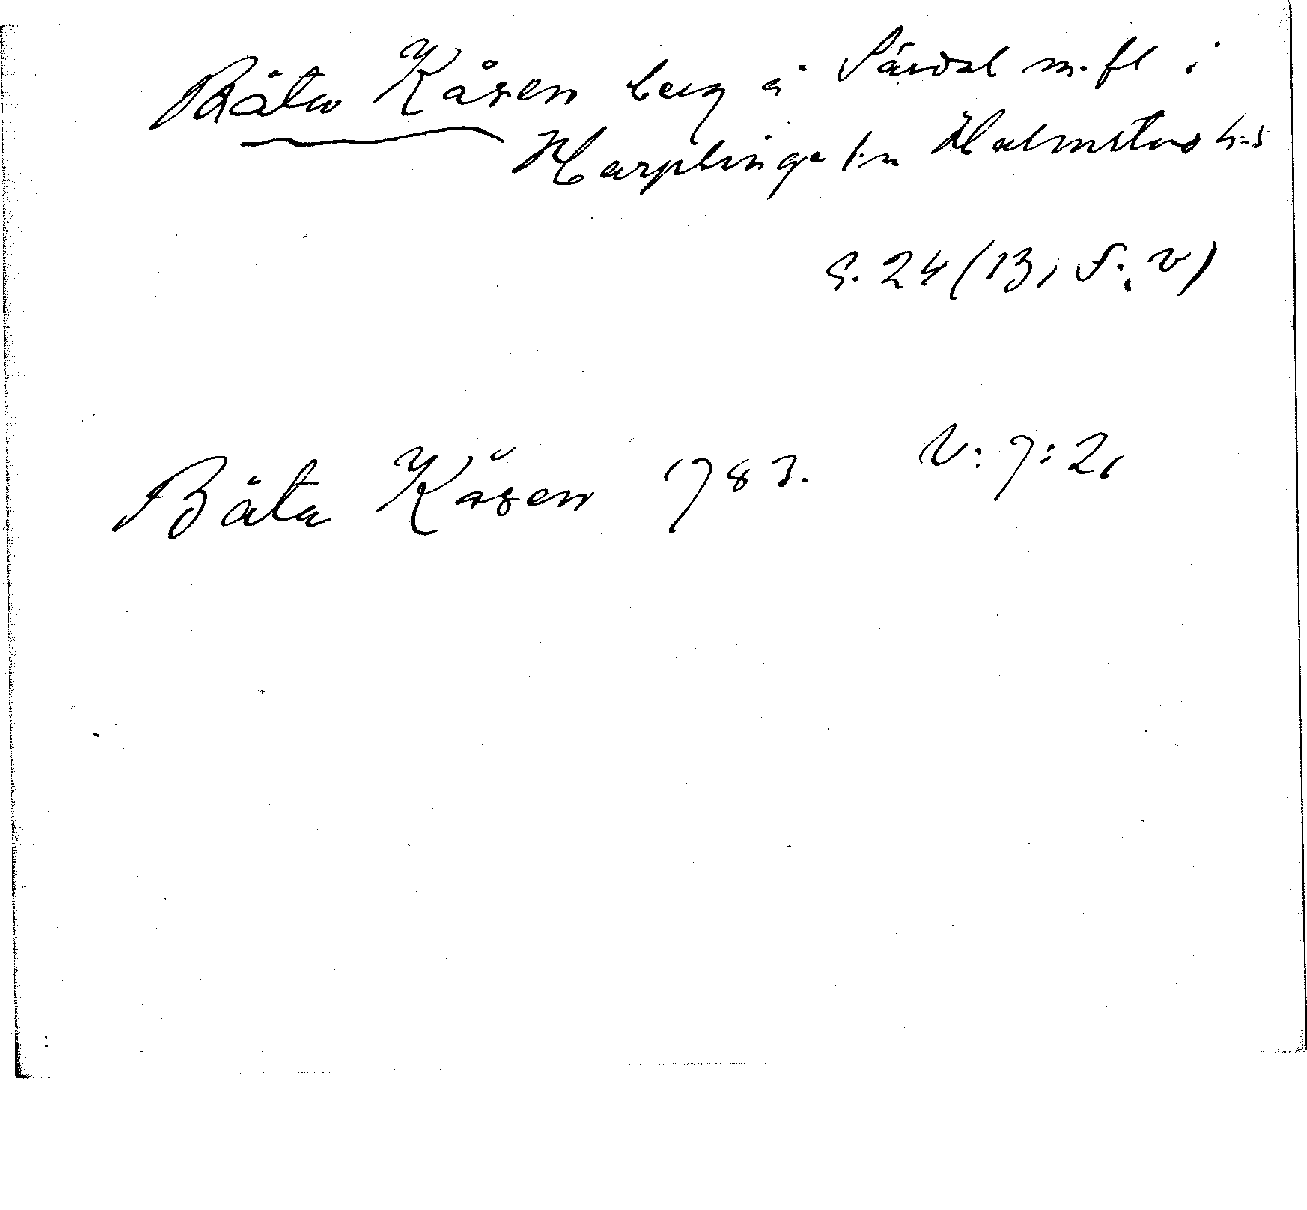 Båta Kåsen berg å Särdal m.fl i
Harplinge sn Halmstads h-d
S. 24 (13, S. v)
Båta Kåsen 1783. V: 7: 2,